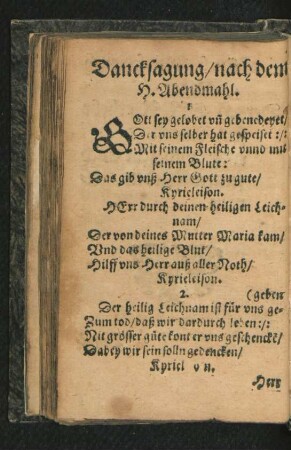 Dancksagung/nach dem
H. Abendmahl.
1
GOtt sey gelobet vñ gebenedeyet/
Der vns selber hat gespeiset :/:
Mit seinem Fleische vnnd mit
seinem Blute:
Das gib vnß Herr Gott zu gute/
Kyrieleison.
HErr durch deinen heiligen Leich-
nam/
Der von deines Mutter Maria kam/
Vnd das heilige Blut/
Hilff vns Herr auß aller Noth/
Kyrieleison.
2. (geben
Der heilig Leichnam ist für vns ge-
Zum tod/daß wir dardurch leben :/:
Nit grösser güte kont er vns geschenckẽ/
Dabey wir sein solln gedencken/
Kyriel
Herr